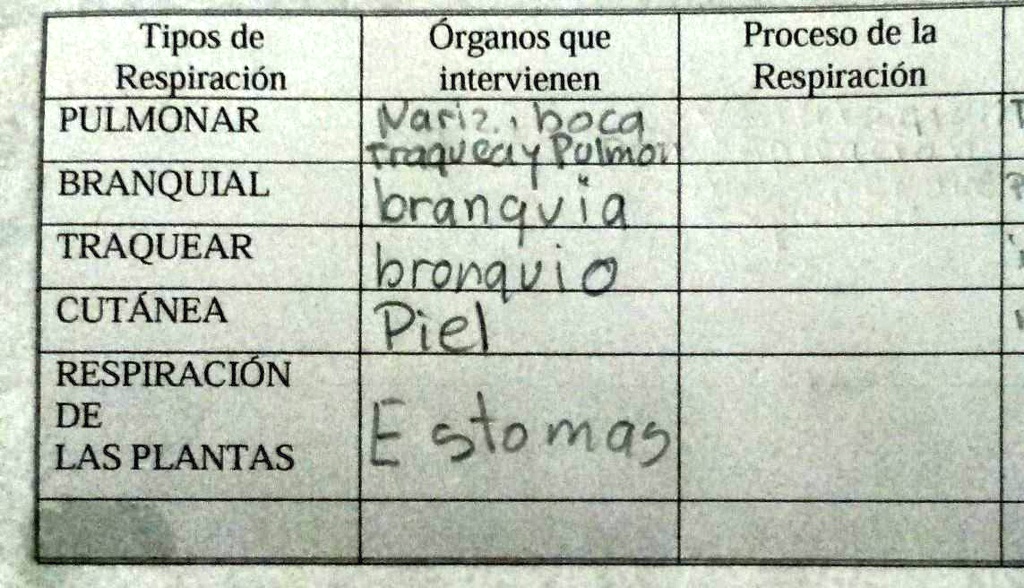 Tipos de
Respiración
Órganos que
intervienen
Proceso de la
Respiración
PULMONAR
Nariz, boca
traquea y Pulmon
BRANQUIAL
branquia
TRAQUEAR
bronquio
CUTÁNEA
Piel
RESPIRACIÓN
DE
LAS PLANTAS
Estomas